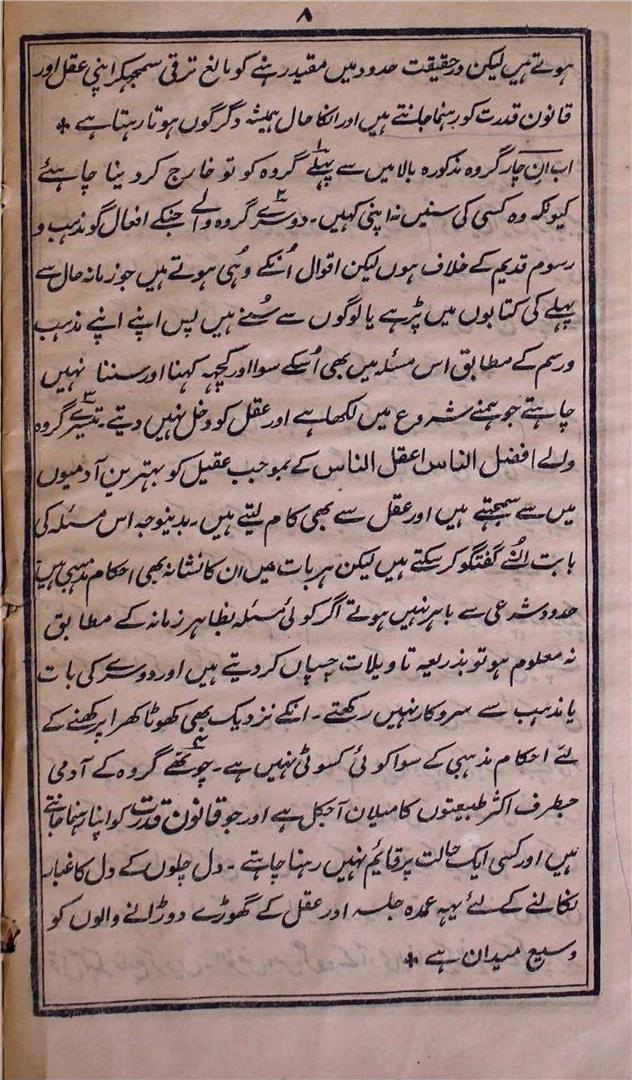 ۸
ہوتے ہیں لیکن درحقیقت حدود میں مقید رہنے کو مانع ترقی سمجہکر اپنی عقل اور
قانون قدرت کو رہنما جانتے ہیں اور انکا حال ہمیشہ دگرگوں ہوتا رہتا ہے *
اب ان چار گروہ مذکورہ بالا میں سے پہلے گروہ کو تو خارج کر دینا چاہئے
کیونکہ وہ کسی کی سنیں نہ اپنی کہیں۔ دوسرے گروہ والے جنکے افعال گو مذہب و
رسوم قدیم کے خلاف ہوں لیکن اقوال اُنکے وہی ہوتے ہیں جو زمانہ حال سے
پہلے کی کتابوں میں پڑہے یا لوگوں سے سُنے ہیں پس اپنے اپنے مذہب
ورسم کے مطابق اس مسئلہ میں بھی اُسکے سوا اور کچہہ کہنا اور سننا نہیں
چاہتے جو ہمنے شروع میں لکھا ہے اور عقل کو دخل نہیں دیتے۔ تیسرے گروہ
والے افضل الناس اعقل الناس کے بموجب عقیل کو بہترین آدمیوں
میں سے سمجہتے ہیں اور عقل سے بھی کام لیتے ہیں۔ بدینوجہ اس مسئلہ کی
بابت اُنسے گفتگو کر سکتے ہیں لیکن ہر بات میں ان کا نشانہ بھی احکام مذہبی ہیں
حدود شرعی سے باہر نہیں ہوتے اگر کوئی مسئلہ بظاہر زمانہ کے مطابق
نہ معلوم ہو تو بذریعہ تاویلات چسپاں کر دیتے ہیں اور دوسرے کی بات
یا مذہب سے سروکار نہیں رکھتے۔ انکے نزدیک بھی کھوٹا کھرا پرکھنے کے
لئے احکام مذہبی کے سوا کوئی کسوٹی نہیں ہے۔ چوتھے گروہ کے آدمی
جسطرف اکثر طبیعتوں کا میلان آجکل ہے اور جو قانون قدرت کو اپنا رہنما جانتے
ہیں اور کسی ایک حالت پر قایم نہیں رہنا چاہتے۔ دل جلوں کے دل کا غبار
نکالنے کے لئے یہہ عمدہ جلسہ اور عقل کے گھوڑے دوڑانے والوں کو
وسیع میدان ہے *